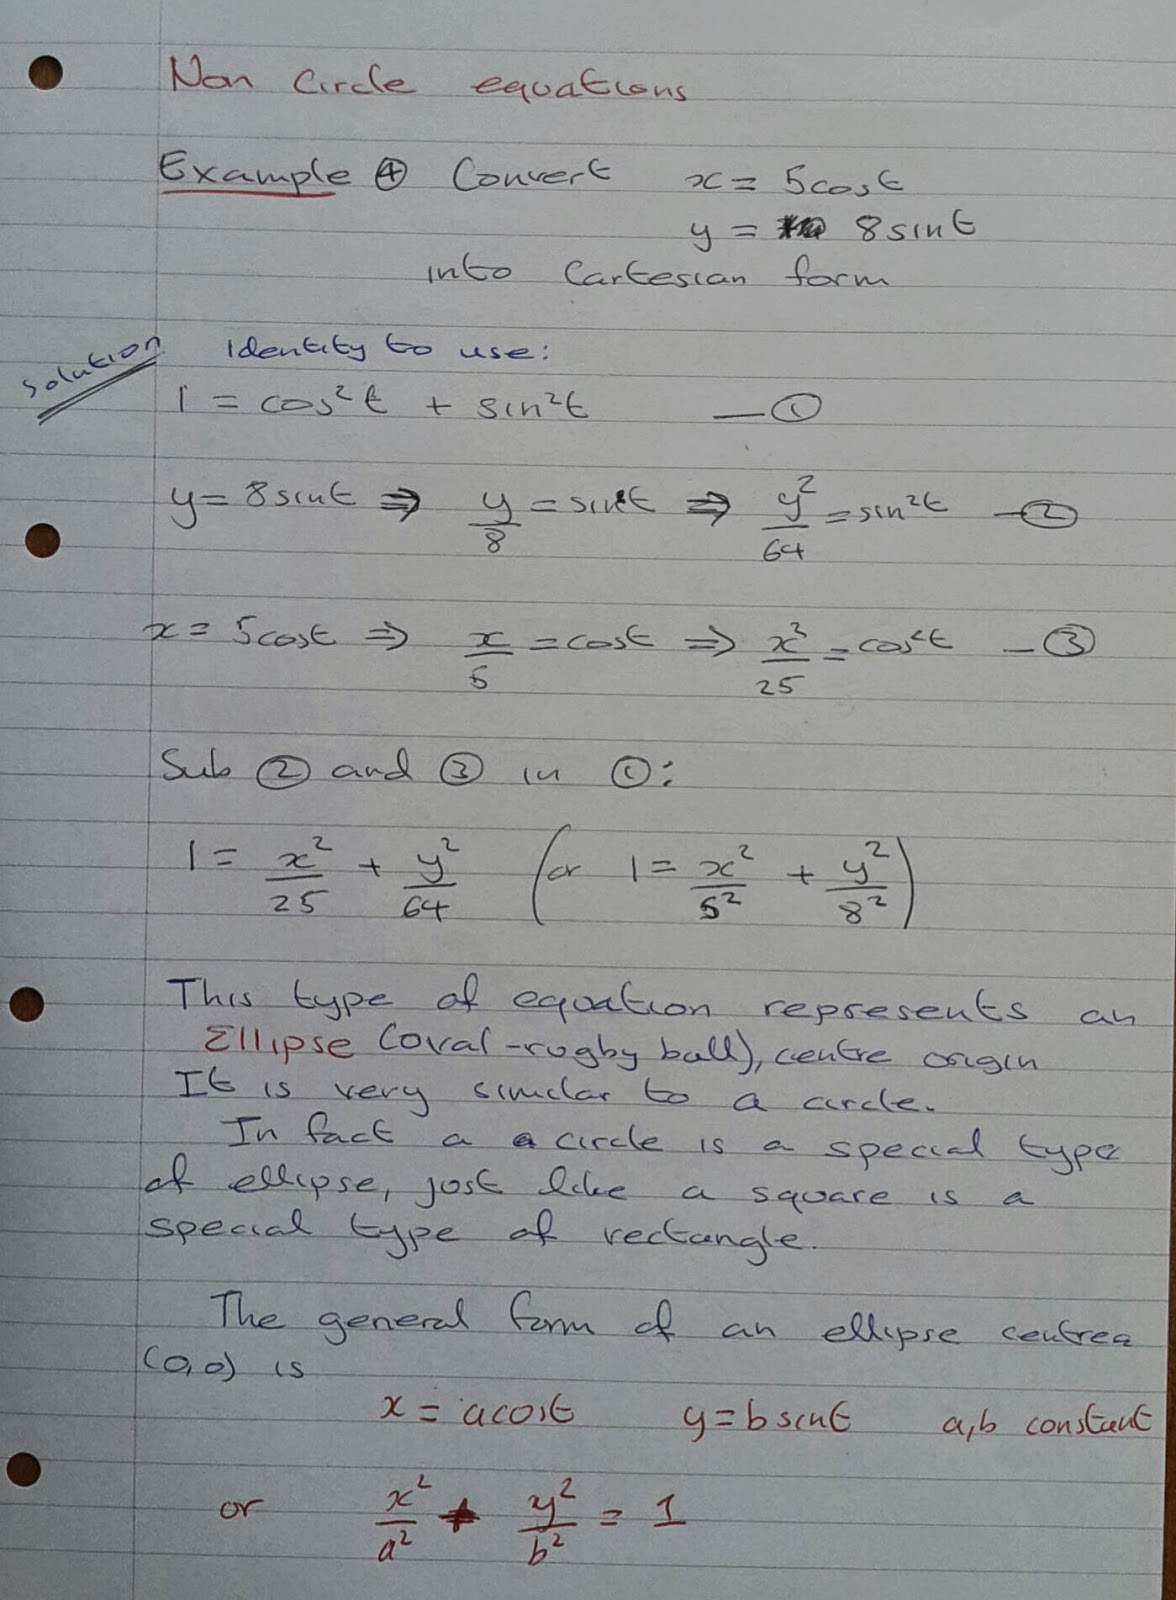 Non Circle equations
Example ④ Convert x = 5cost
y = 8sint
into Cartesian form
Solution Identity to use:
1 = cos²t + sin²t — ①
y = 8sint ⇒ y/8 = sint ⇒ y²/64 = sin²t — ②
x = 5cost ⇒ x/5 = cost ⇒ x²/25 = cos²t — ③
Sub ② and ③ in ①:
1 = x²/25 + y²/64 (or 1 = x²/5² + y²/8²)
This type of equation represents an
Ellipse (oval-rugby ball), centre origin
It is very similar to a circle.
In fact a a circle is a special type
of ellipse, just like a square is a
special type of rectangle.
The general form of an ellipse centred
(0,0) is
x = acost y = bsint a,b constant
or x²/a² + y²/b² = 1